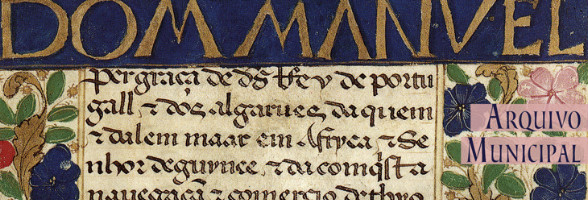 DOM MANVEL
per graça de ds Rey de portu
gall ⁊ dos algarues daquem
⁊ dalem maar em Affryca ⁊ Se
nhor de guynee ⁊ da comqsta
nauegaçã ⁊ comercio de thyo
ARQUIVO
MUNICIPAL